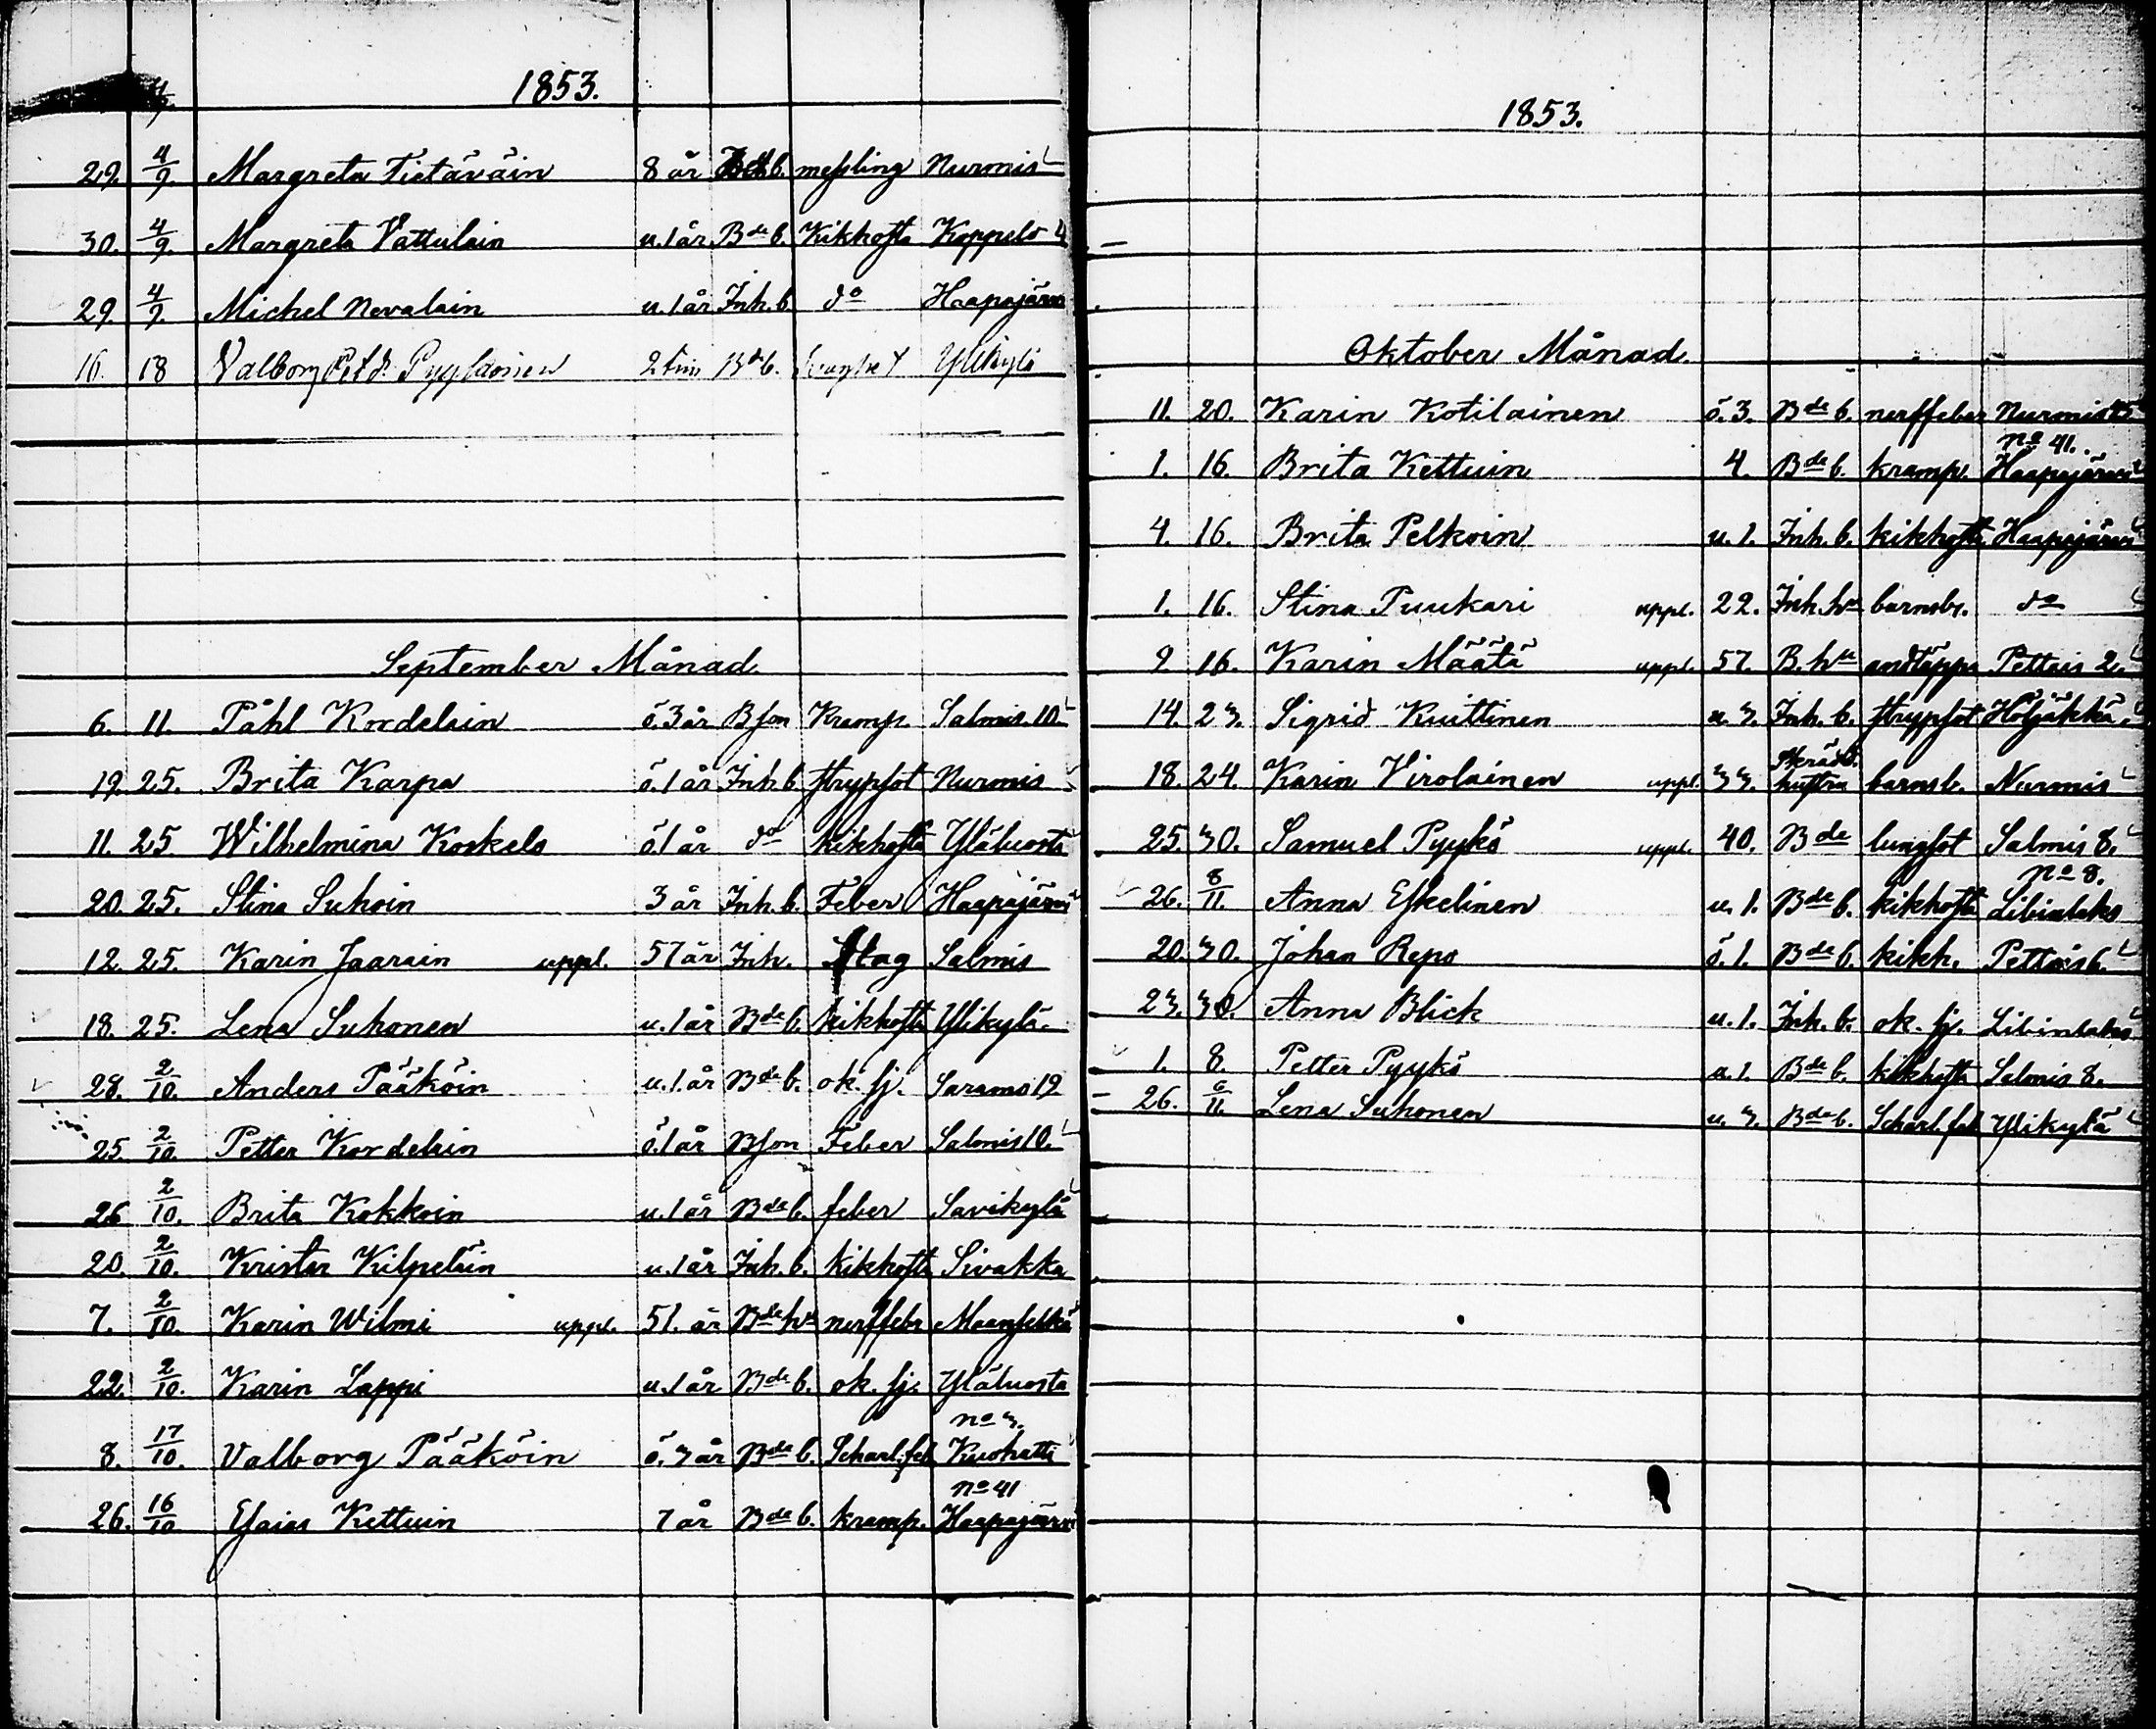 1853.
29. 4/9. Margreta Tietäväin 8 år b. messling Nurmis
30. 4/9. Margreta Vattulain u. 1 år Bde b. Kikhosta Koppelo 4
29. 4/9. Michel Nevalain u. 1 år Inh. b. do Haapajärvi
16. 18 Valborg Petdr. 2 tim Bde b. Ylikylä
September Månad
6. 11. Påhl Kordelain ö. 3 år Bson Kramp. Salmis. 10
19. 25. Brita Karpa ö. 1 år Inh. b. strypsot Nurmis
11. 25. Wilhelmina Koskelo ö. 1 år do kikhosta Yläluosta
20. 25. Stina Suhoin 3 år Inh. b. Feber Haapajärvi
12. 25. Karin Jaarain uppl. 57 år Inh. Slag Salmis
18. 25. Lena Suhonen u. 1 år Bde b. kikhosta Ylikylä.
28. 2/10. Anders Pääköin u. 1 år Bde b. ok. sj. Saramo 19.
25. 2/10. Petter Kordelain ö. 1 år Bson Feber Salmis 10.
26 2/10. Brita Kokkoin u. 1 år Bde b. feber Savikylä
20. 2/10. Krister Kilpeläin u. 1 år Inh. b. kikhosta Sivakka
7. 2/10. Karin Wilmi uppl. 51. år Bde hu nerffebr Maanselkä
22. 2/10. Karin Lappi u. 1 år Bde b. ok. sj. Yläluosta
8. 17/10. Valborg Pääköin ö. 3 år Bde b. Scharl. feb no 3. Kuohatti
26. 16/10 Esaias Kettuin 7 år Bde b. kramp. no 41 Haapajärvi
1853.
Oktober Månad
11. 20. Karin Kotilainen ö. 3. Bde b. nerffeber Nurmis 25
1. 16. Brita Kettuin 4. Bde b. kramp. no 41. Haapajärvi
4. 16. Brita Pelkoin u. 1. Inh. b. kikhosta Haapajärvi
1. 16. Stina Puukari uppl. 22. Inh. hu barnsb. do
9 16. Karin Määtä uppl. 57. B. hu andtäppa Pettais 2.
14. 23. Sigrid Kuittinen u. 3. Inh. b. strypsot Höljäkkä.
18. 24. Karin Virolainen uppl. 33. Skrädd. hustru barnsb. Nurmis
25. 30. Samuel Pyykö uppl. 40. Bde lungsot Salmis 8.
26. 8/11. Anna Eskelinen u. 1. Bde b. kikhosta no 8. Libinlaks
20. 30. Johan Repo ö. 1. Bde b. kikh. Pettais 6.
23. 30. Anna Blick u. 1. Inh. b. ok. sj. Libinlaks
1. 8. Petter Pyykö u. 1. Bde b. kikhosta Salmis 8.
26. 6/11. Lena Suhonen u. 3. Bde b. Scharl. feb Ylikylä